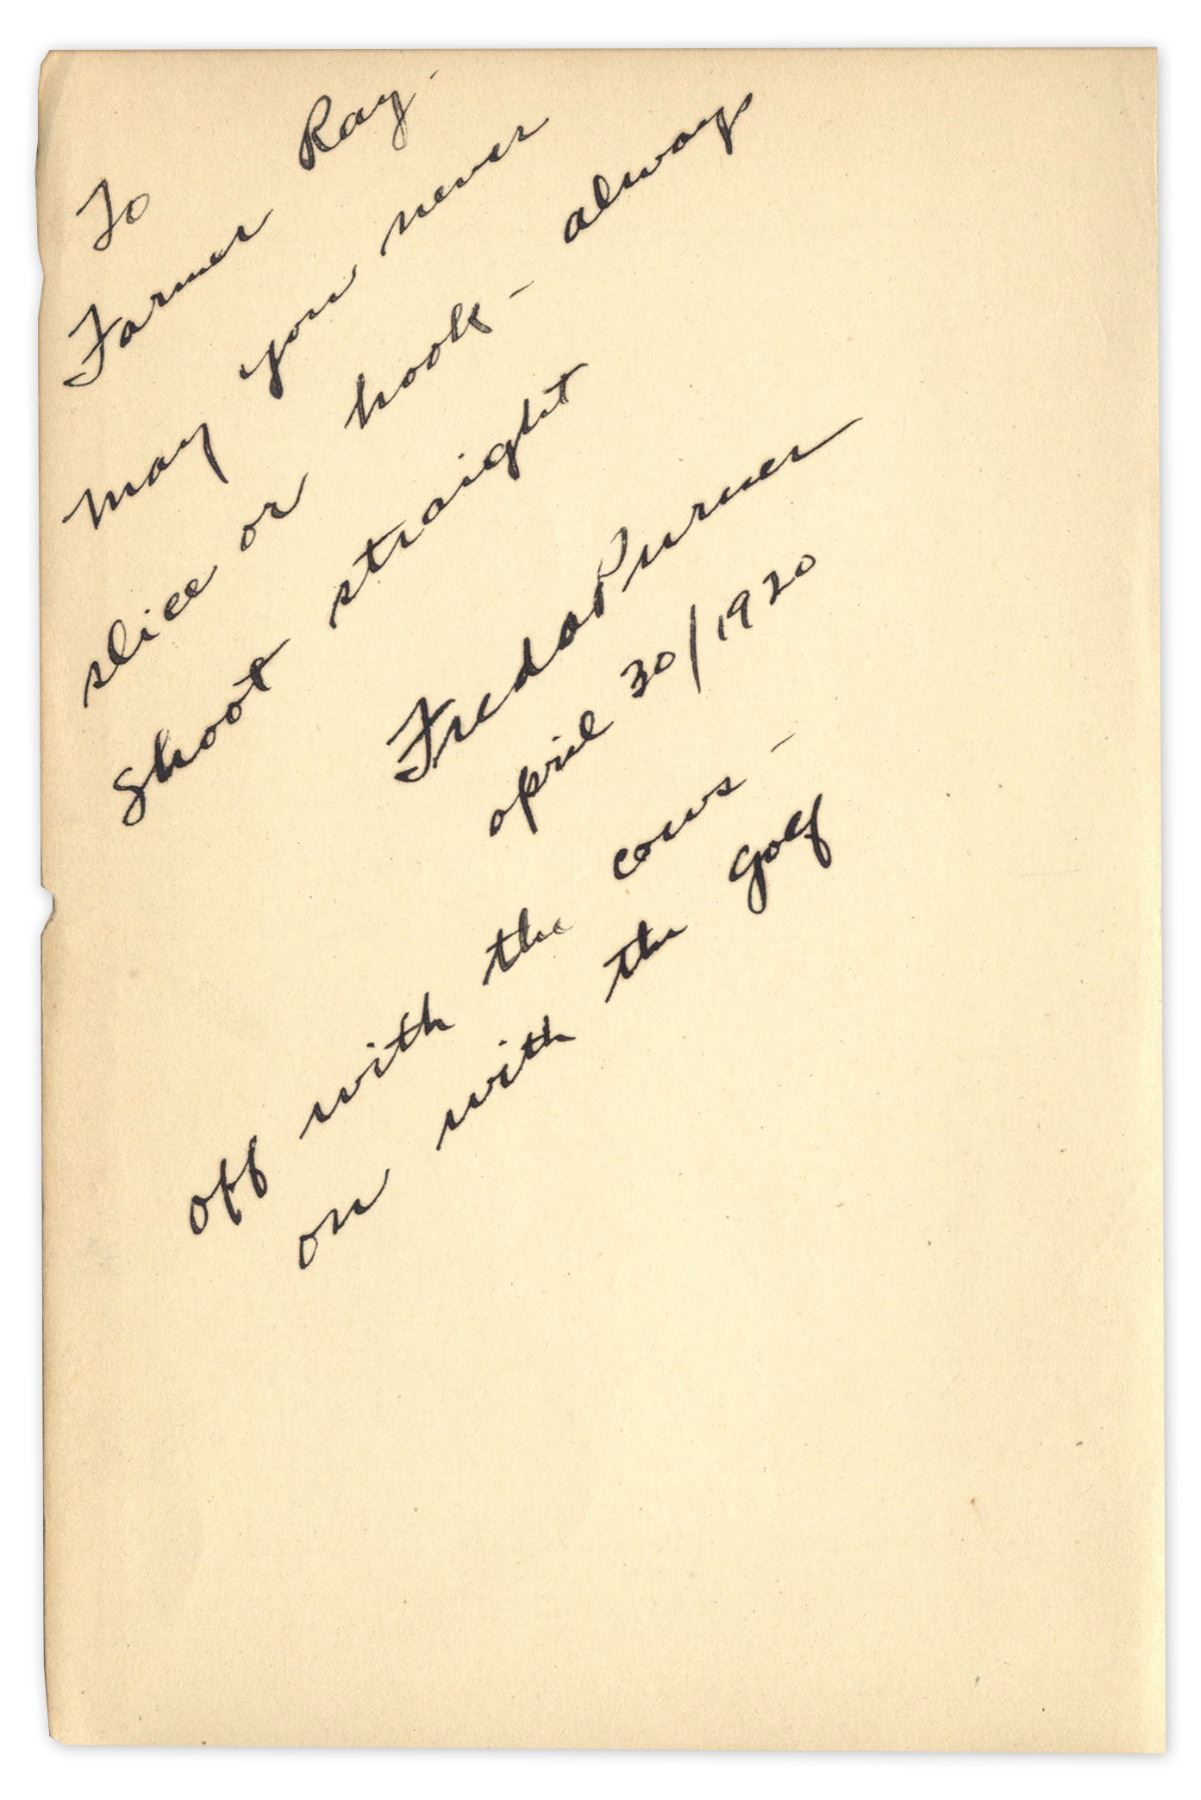 To
Farmer Ray-
may you never
slice or hook - always
shoot straight
Freda Purner
april 30/1920
off with the cows -
on with the golf